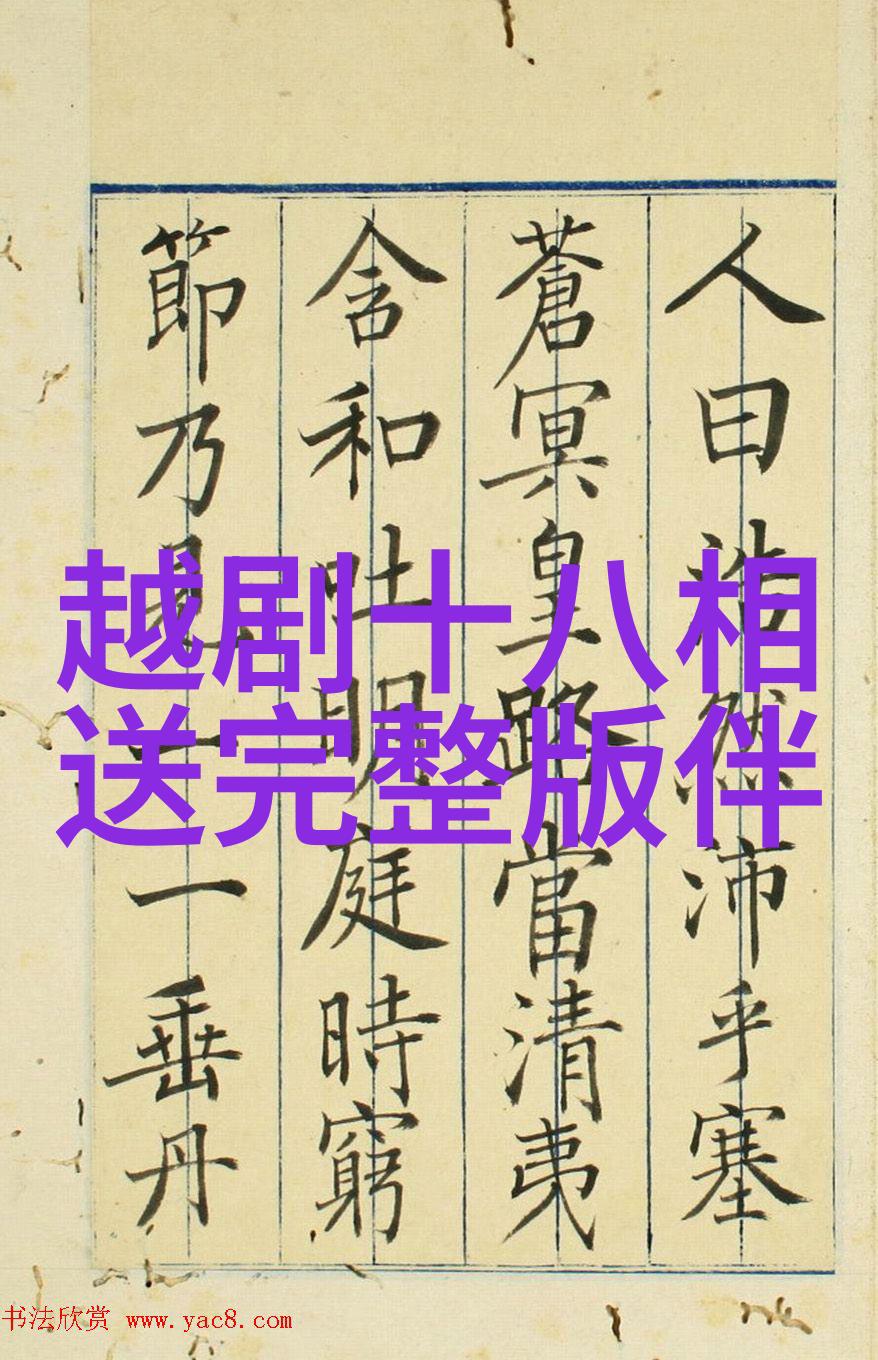 人曰浩然沛乎塞
蒼冥皇路當清夷
含和吐明庭時窮
節乃見一一垂丹
越剧十八相
送完整版伴
书法欣赏 www.yac8.com